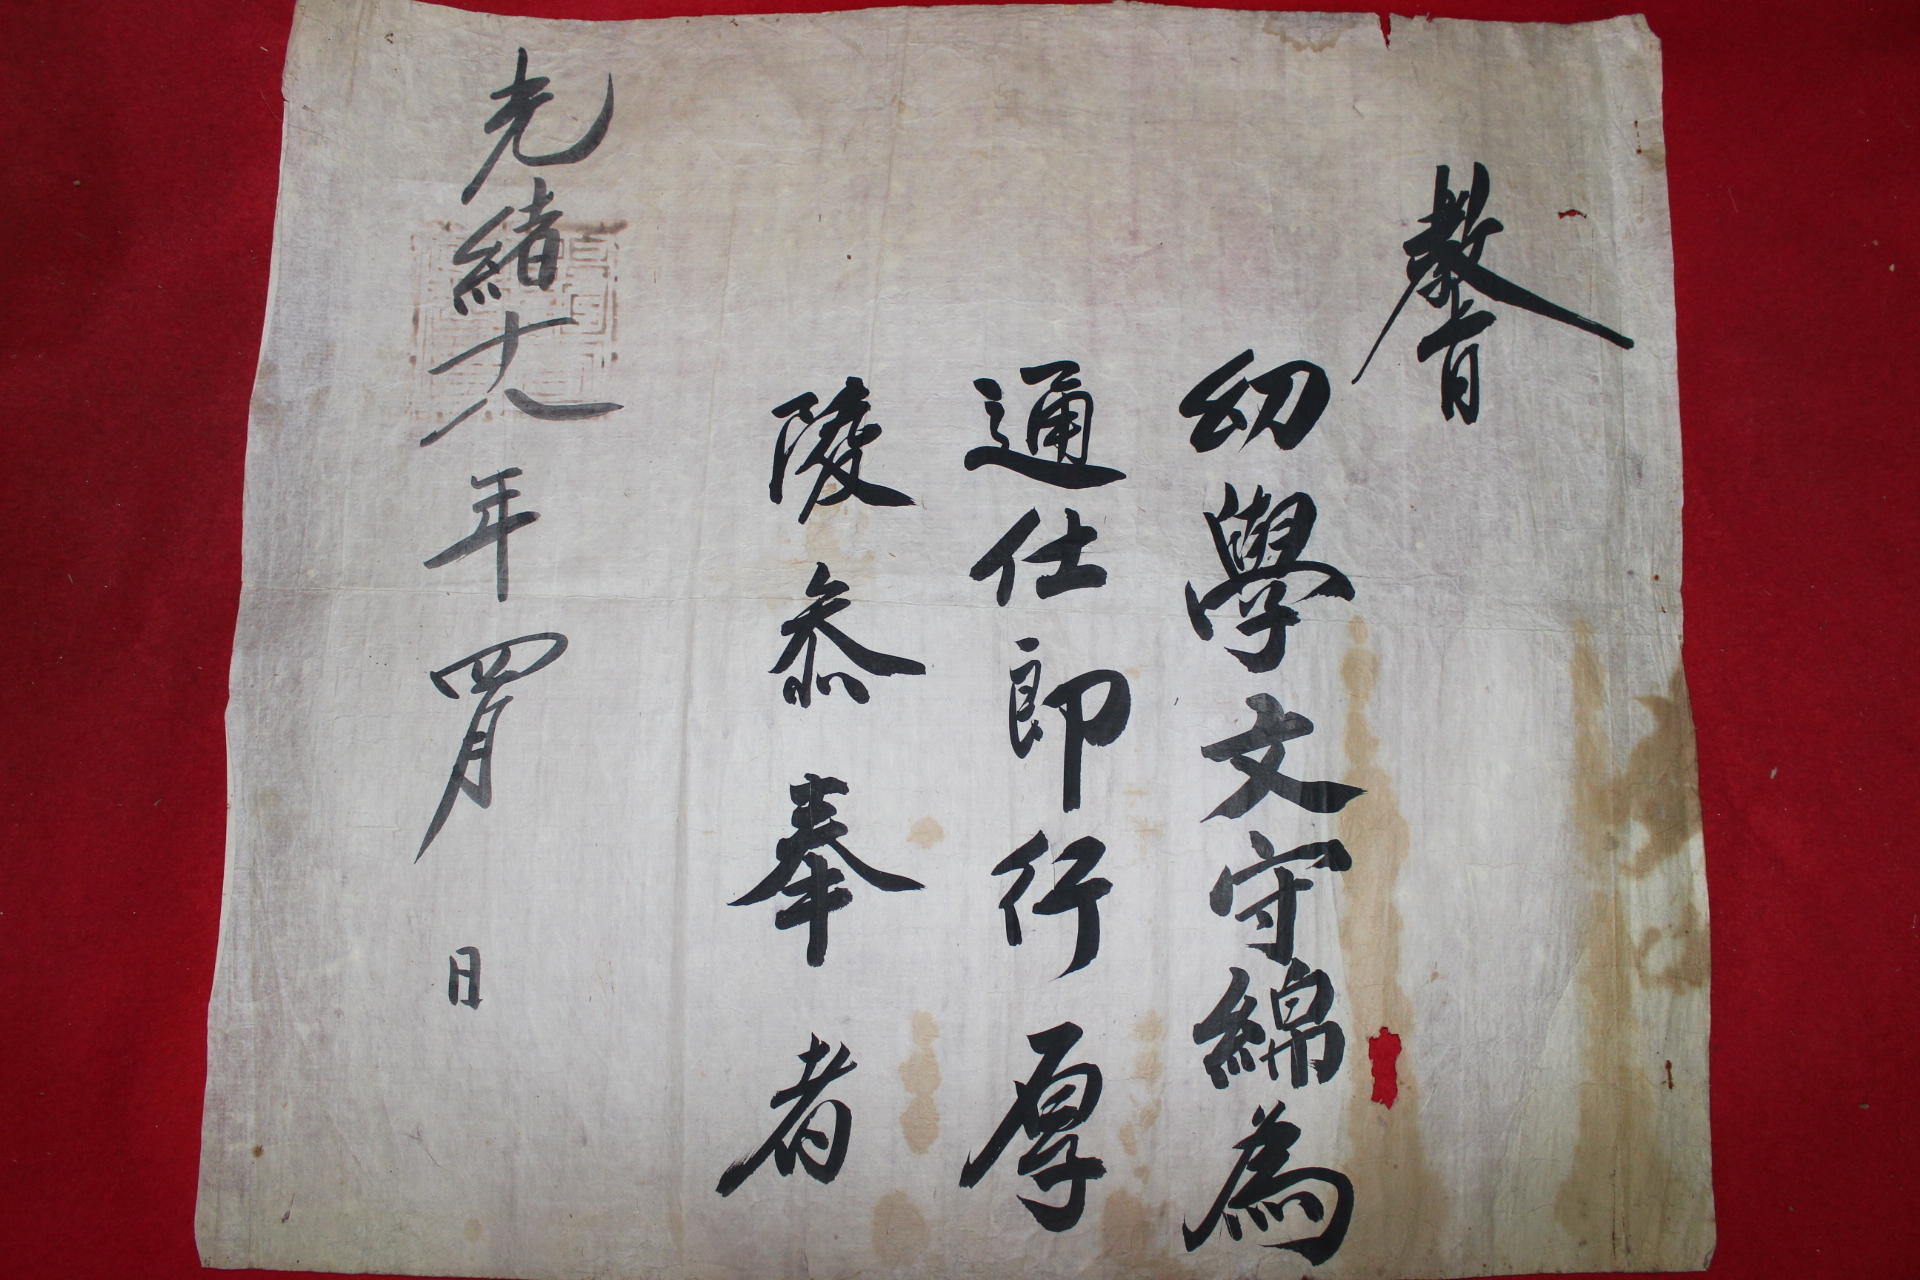 敎旨
幼學文守綿爲
通仕郞行厚
陵叅奉者
光緖十八年四月 日